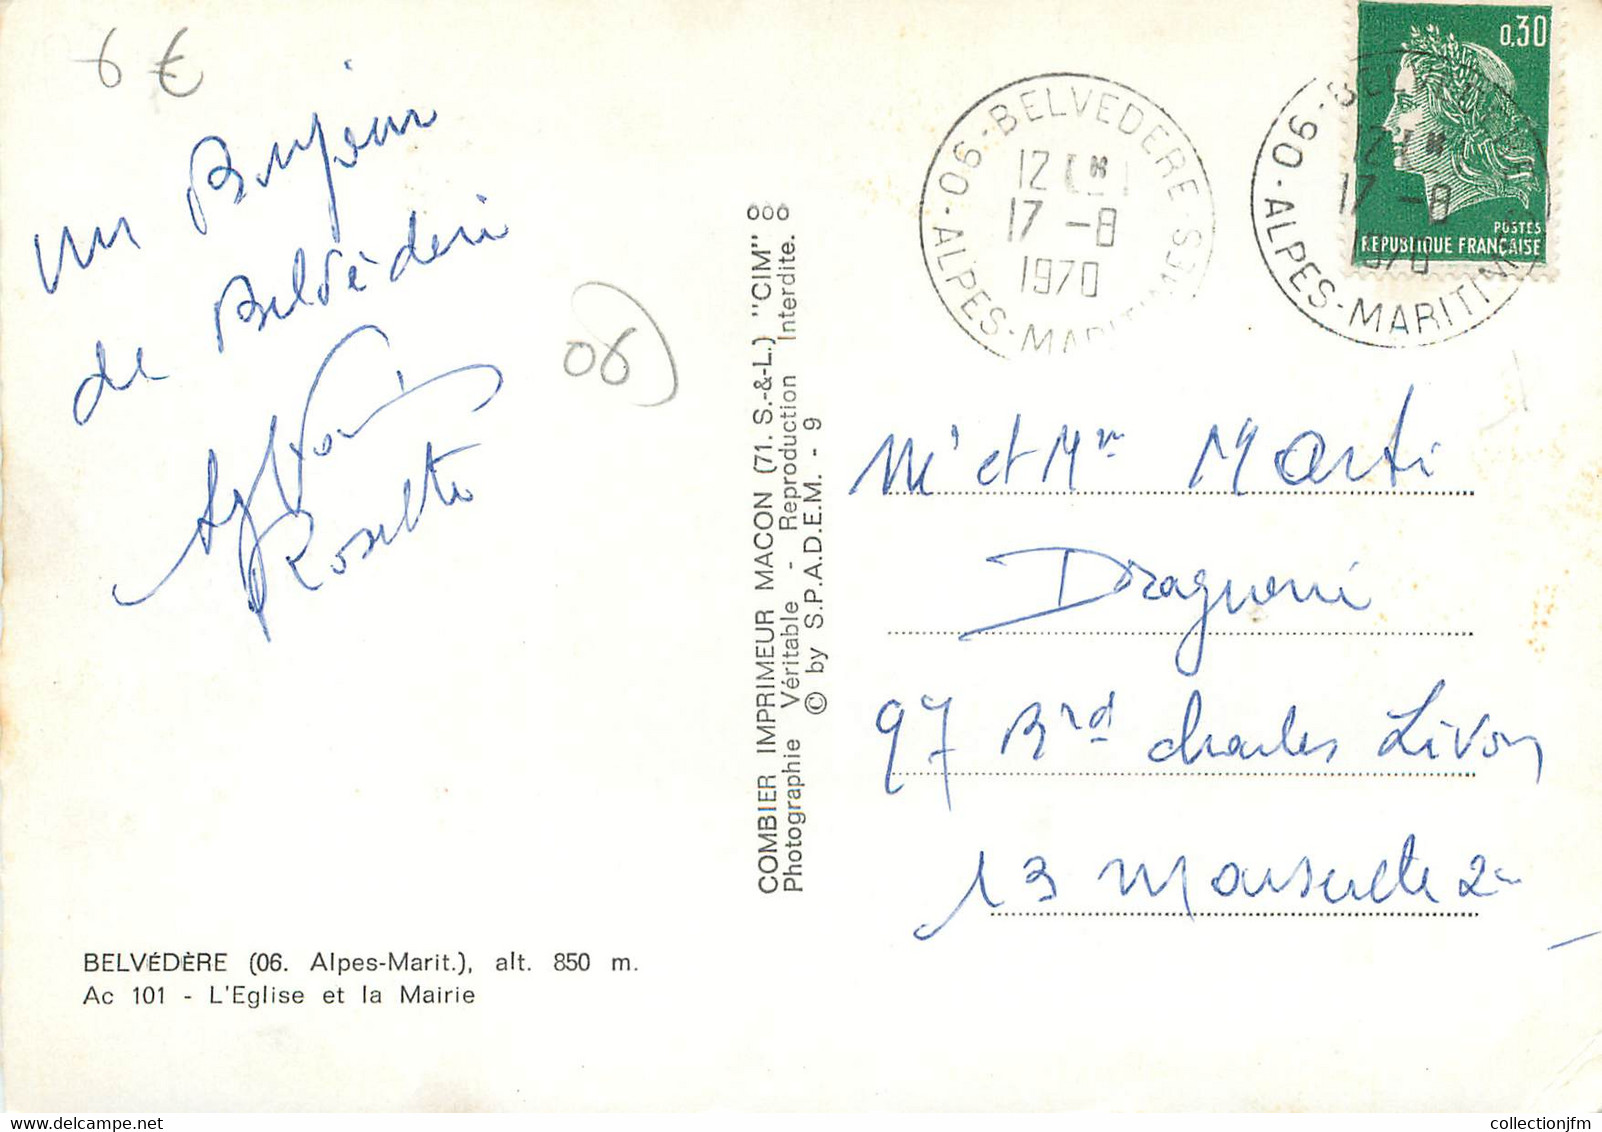 6 €
un Bonjour
de Belvédère
Sylvain
Rosette
06
BELVÉDÈRE (06. Alpes-Marit.), alt. 850 m.
Ac 101 - L'Eglise et la Mairie
COMBIER IMPRIMEUR MACON (71. S.-&-L.) "CIM"
Photographie Véritable - Reproduction Interdite.
© by S.P.A.D.E.M. - 9
06 - BELVEDERE - ALPES-MARITIMES
12 H
17 -8
1970
06 - BELVEDERE - ALPES-MARITIMES
12 H
17 -8
1970
0,30
POSTES
REPUBLIQUE FRANÇAISE
Mr et Mme Marti
Dragueni
97 Brd Charles Livon
13 Marseille 2e
collectionjfm